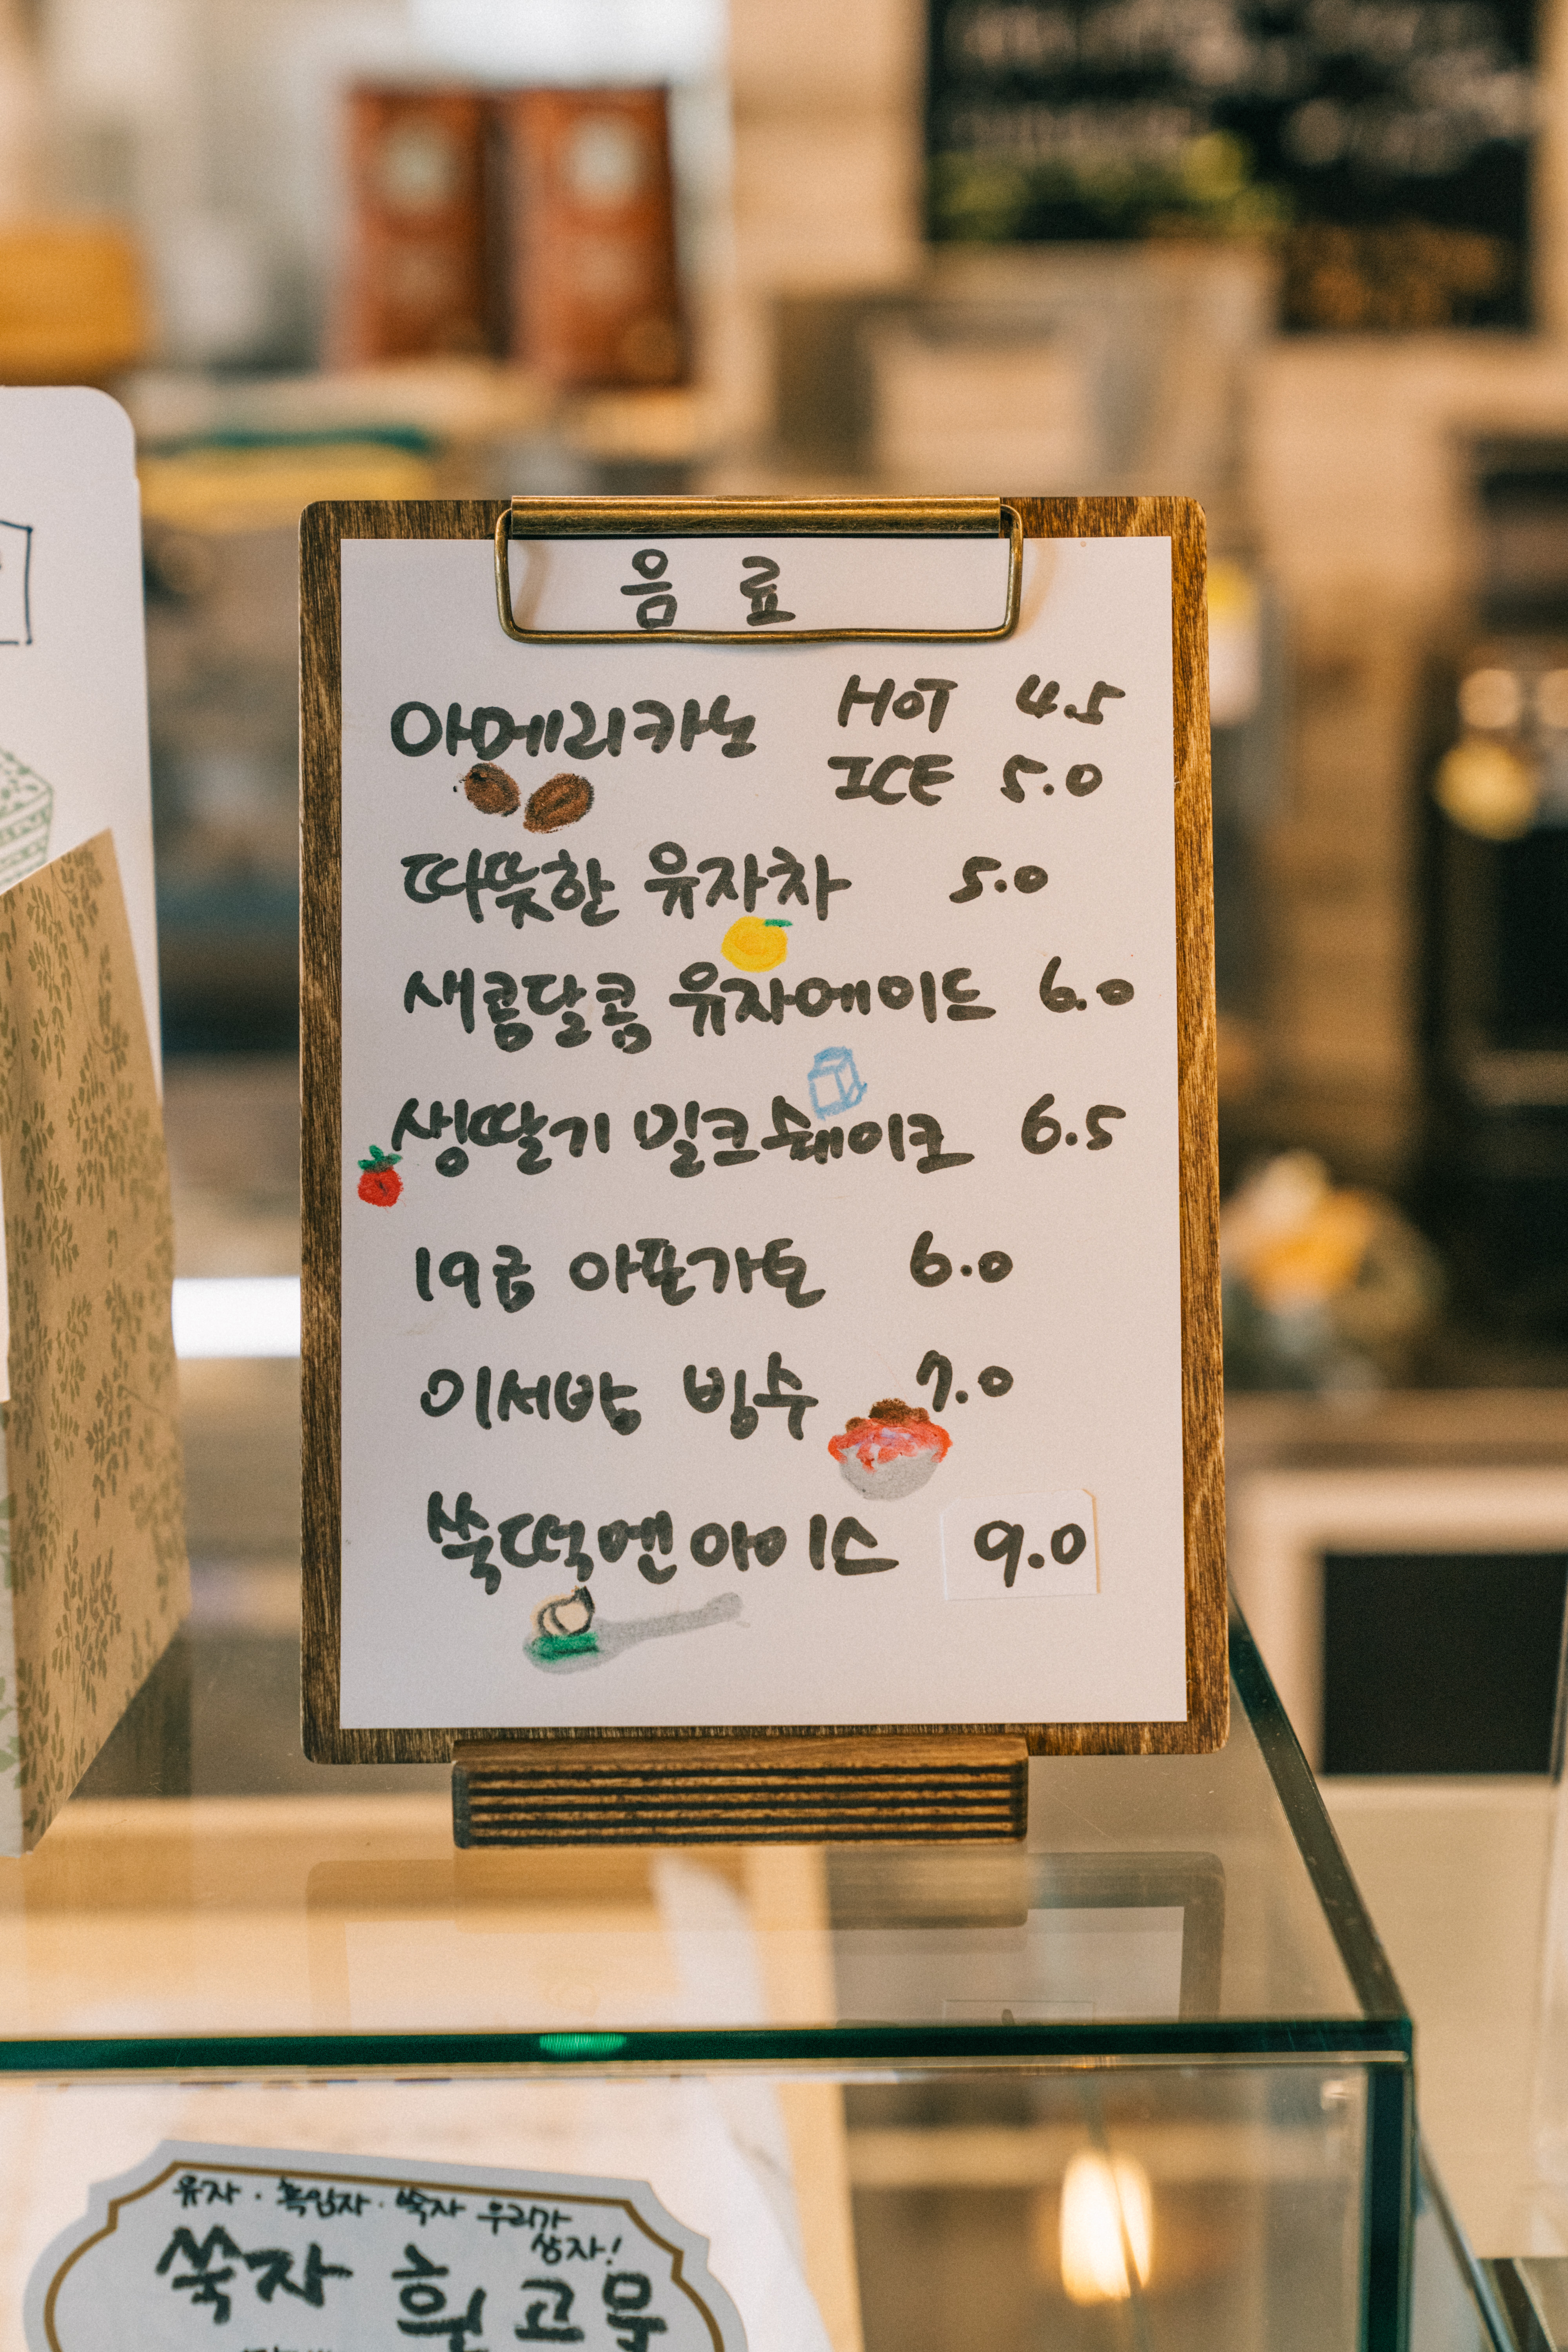 음료
아메리카노 HOT 4.5
ICE 5.0
따뜻한 유자차 5.0
새콤달콤 유자에이드 6.0
생딸기 밀크쉐이크 6.5
19금 아포가토 6.0
이서방 빙수 7.0
쑥떡엔 아이스 9.0
유자· 흑임자 · 쑥자 우리가
상자!
쑥자 흰 고물